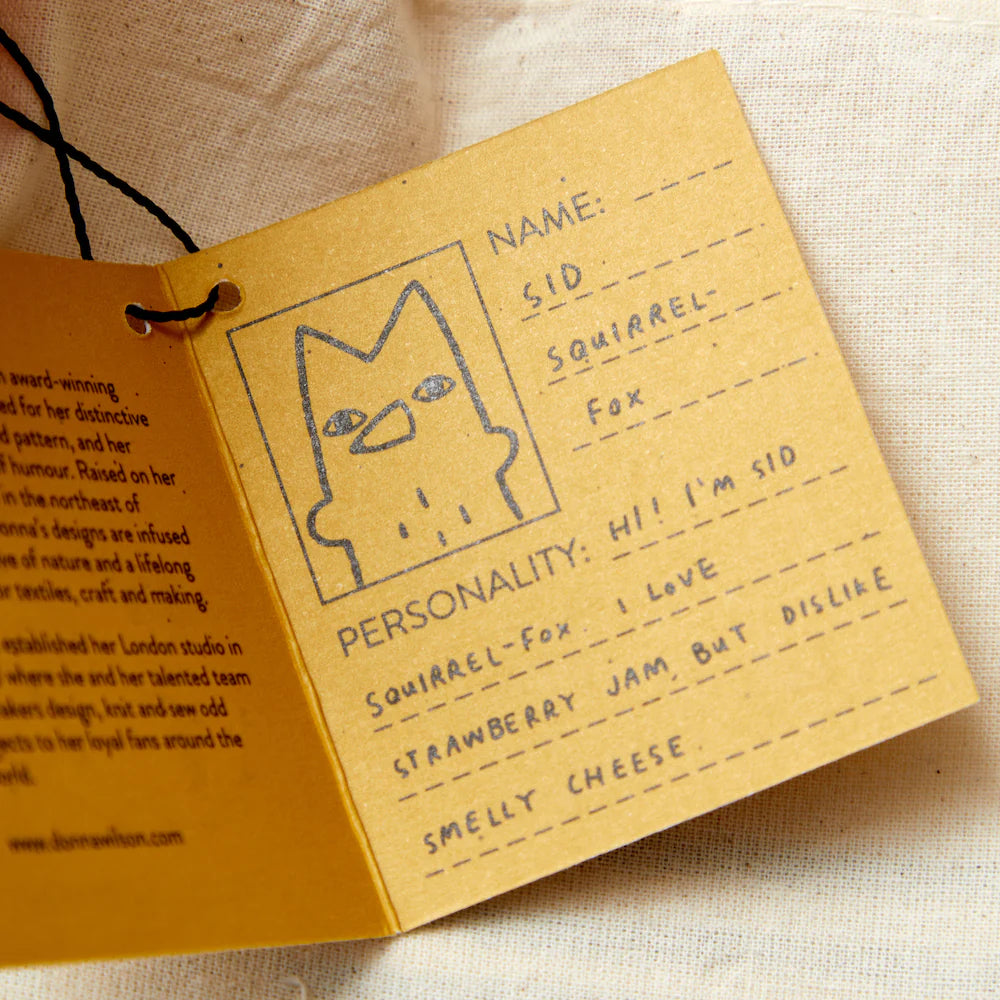 award-winning
ed for her distinctive
d pattern, and her
f humour. Raised on her
in the northeast of
onna's designs are infused
ve of nature and a lifelong
or textiles, craft and making.
established her London studio in
where she and her talented team
akers design, knit and sew odd
jects to her loyal fans around the
orld.
www.donnawilson.com
NAME:
SID
SQUIRREL-
FOX
PERSONALITY: HI! I'M SID
SQUIRREL-FOX. I LOVE
STRAWBERRY JAM, BUT DISLIKE
SMELLY CHEESE.